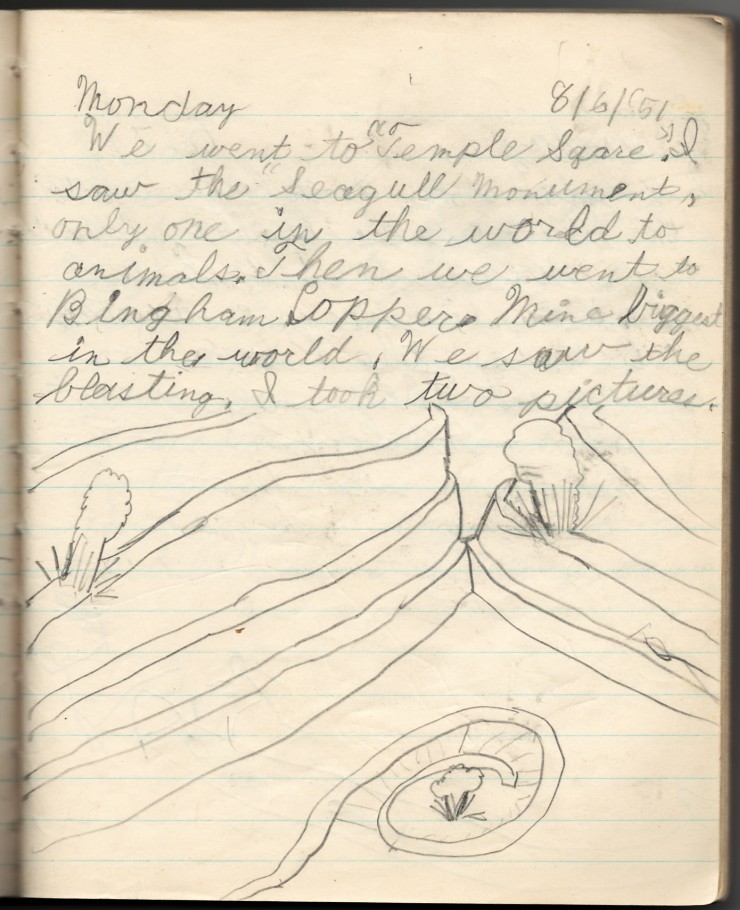 Monday 8/6/51
We went to Temple Sqare. I
saw the "Seagull Monument,
only one in the world to
animals. Then we went to
Bingham Copper Mine biggest
in the world. We saw the
blasting. I took two pictures.